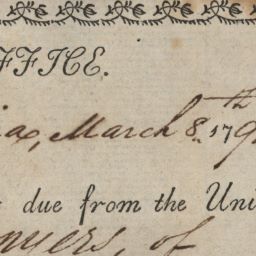 FFICE.
ia, March 8th 179
due from the Uni
nyers, of